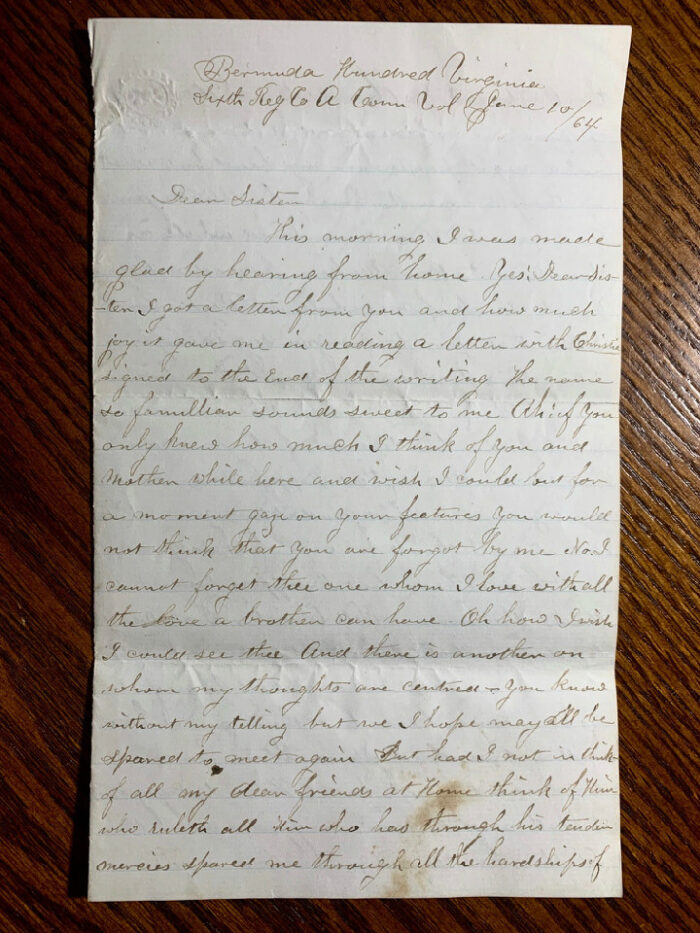 Bermuda Hundred Virginia
Sixth Reg Co A Conn Vol June 10/64
Dear Sister
This morning I was made
glad by hearing from home Yes! Dear Sis-
-ter I got a letter from you and how much
joy it gave me in reading a letter with Christie
signed to the End of the writing The name
so famillian sounds sweet to me Ah! if You
only knew how much I think of You and
Mother while here and wish I could but for
a moment gaze on Your features You would
not think that You are forgot by me No. I
cannot forget thee one whom I love with all
the Love a brother can have Oh how I wish
I could see thee And there is another on
whom my thoughts are centred - You know
without my telling but we I hope may all be
spared to meet again But had I not in think
of all my dear friends at Home think of Him
who ruleth all Him who has through his tender
mercies spared me through all the hardships of